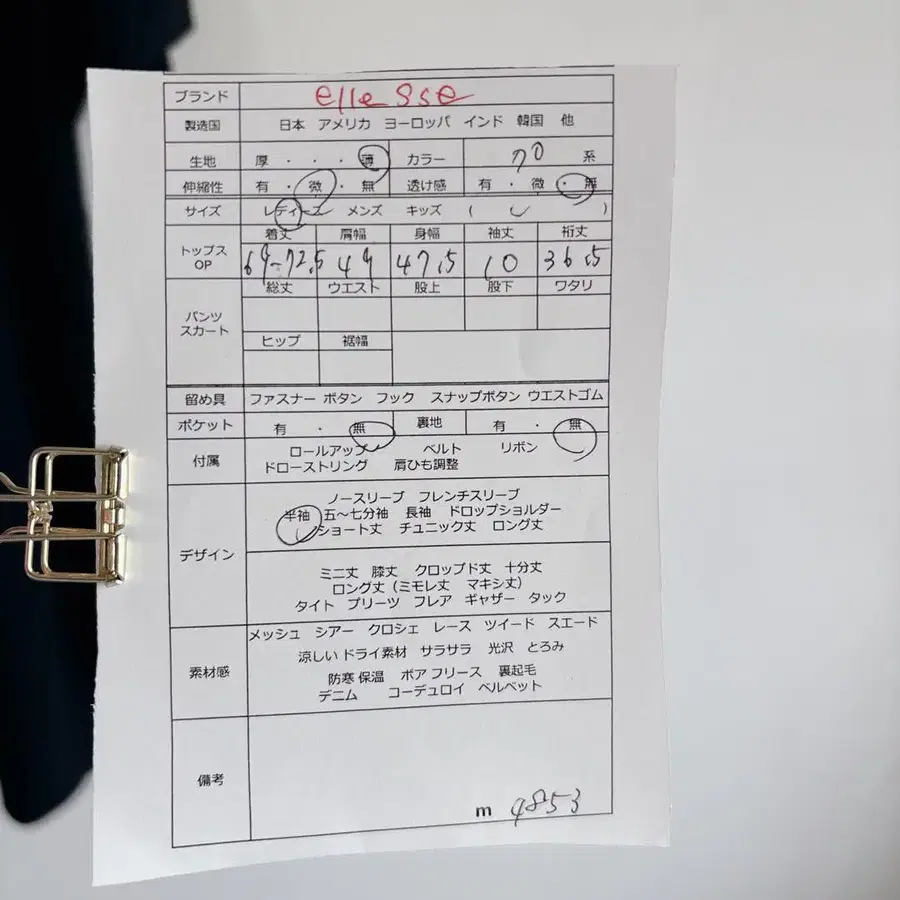 ブランド ellesse
製造国 日本 アメリカ ヨーロッパ インド 韓国 他
生地 厚 ・ ・ ・ 薄 カラー 系
伸縮性 有 ・ 微 ・ 無 透け感 有 ・ 微 ・ 無
サイズ レディース メンズ キッズ ( )
着丈 肩幅 身幅 袖丈 裄丈
トップス
OP
69-72.5 49 47.5 10 36.5
総丈 ウエスト 股上 股下 ワタリ
パンツ
スカート
ヒップ 裾幅
留め具 ファスナー ボタン フック スナップボタン ウエストゴム
ポケット 有 ・ 無 裏地 有 ・ 無
付属 ロールアップ ベルト リボン
ドローストリング 肩ひも調整
デザイン
ノースリーブ フレンチスリーブ
半袖 五~七分袖 長袖 ドロップショルダー
ショート丈 チュニック丈 ロング丈
ミニ丈 膝丈 クロップド丈 十分丈
ロング丈(ミモレ丈 マキシ丈)
タイト プリーツ フレア ギャザー タック
素材感
メッシュ シアー クロシェ レース ツイード スエード
涼しい ドライ素材 サラサラ 光沢 とろみ
防寒 保温 ボア フリース 裏起毛
デニム コーデュロイ ベルベット
備考
m 9853